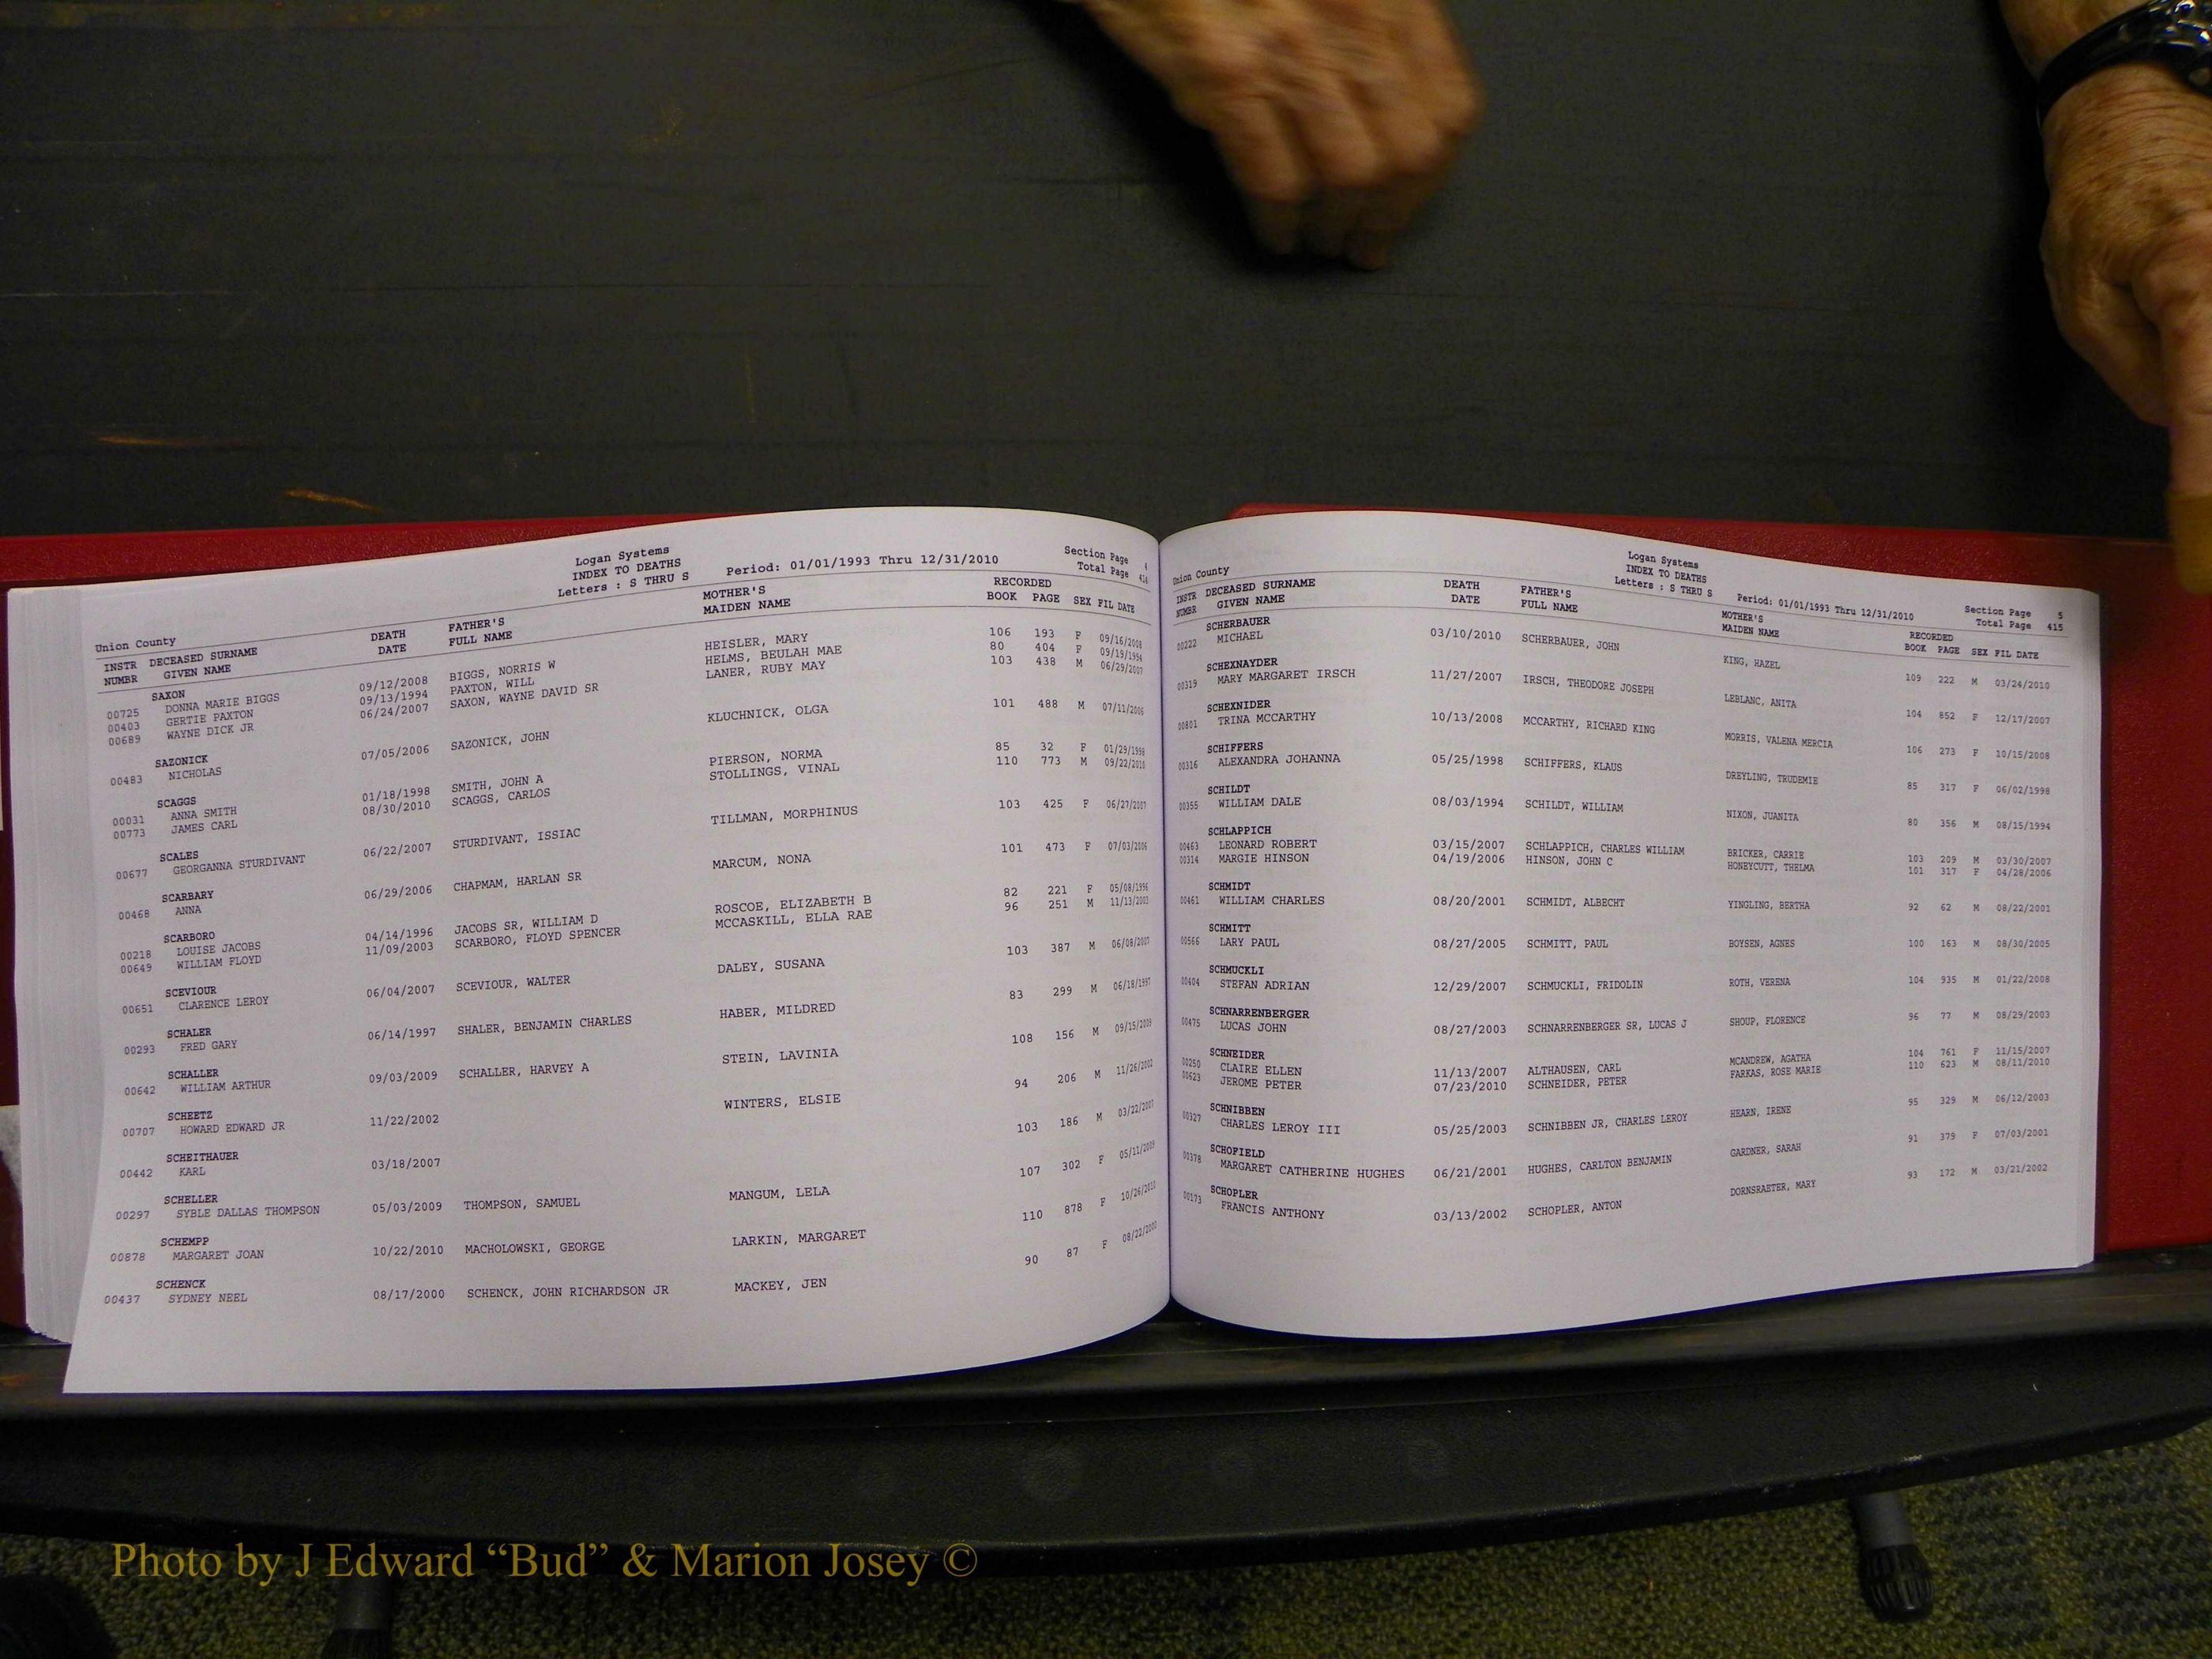 Logan Systems
INDEX TO DEATHS
Letters : S THRU S
Period: 01/01/1993 Thru 12/31/2010
Section Page 4
Total Page 414
Union County
INSTR DECEASED SURNAME DEATH FATHER'S MOTHER'S RECORDED
NUMBR GIVEN NAME DATE FULL NAME MAIDEN NAME BOOK PAGE SEX FIL DATE
SAXON
00725 DONNA MARIE BIGGS 09/12/2008 BIGGS, NORRIS W HEISLER, MARY 106 193 F 09/16/2008
00403 GERTIE PAXTON 09/13/1994 PAXTON, WILL HELMS, BEULAH MAE 80 404 F 09/19/1994
00689 WAYNE DICK JR 06/24/2007 SAXON, WAYNE DAVID SR LANER, RUBY MAY 103 438 M 06/29/2007
SAZONICK
00483 NICHOLAS 07/05/2006 SAZONICK, JOHN KLUCHNICK, OLGA 101 488 M 07/11/2006
SCAGGS
00031 ANNA SMITH 01/18/1998 SMITH, JOHN A PIERSON, NORMA 85 32 F 01/29/1998
00773 JAMES CARL 08/30/2010 SCAGGS, CARLOS STOLLINGS, VINAL 110 773 M 09/22/2010
SCALES
00677 GEORGANNA STURDIVANT 06/22/2007 STURDIVANT, ISSIAC TILLMAN, MORPHINUS 103 425 F 06/27/2007
SCARBARY
00468 ANNA 06/29/2006 CHAPMAM, HARLAN SR MARCUM, NONA 101 473 F 07/03/2006
SCARBORO
00218 LOUISE JACOBS 04/14/1996 JACOBS SR, WILLIAM D ROSCOE, ELIZABETH B 82 221 F 05/08/1996
00649 WILLIAM FLOYD 11/09/2003 SCARBORO, FLOYD SPENCER MCCASKILL, ELLA RAE 96 251 M 11/13/2003
SCEVIOUR
00651 CLARENCE LEROY 06/04/2007 SCEVIOUR, WALTER DALEY, SUSANA 103 387 M 06/08/2007
SCHALER
00293 FRED GARY 06/14/1997 SHALER, BENJAMIN CHARLES HABER, MILDRED 83 299 M 06/18/1997
SCHALLER
00642 WILLIAM ARTHUR 09/03/2009 SCHALLER, HARVEY A STEIN, LAVINIA 108 156 M 09/15/2009
SCHEETZ
00707 HOWARD EDWARD JR 11/22/2002 WINTERS, ELSIE 94 206 M 11/26/2002
SCHEITHAUER
00442 KARL 03/18/2007 103 186 M 03/22/2007
SCHELLER
00297 SYBLE DALLAS THOMPSON 05/03/2009 THOMPSON, SAMUEL MANGUM, LELA 107 302 F 05/11/2009
SCHEMPP
00878 MARGARET JOAN 10/22/2010 MACHOLOWSKI, GEORGE LARKIN, MARGARET 110 878 F 10/26/2010
SCHENCK
00437 SYDNEY NEEL 08/17/2000 SCHENCK, JOHN RICHARDSON JR MACKEY, JEN 90 87 F 08/22/2000
Logan Systems
INDEX TO DEATHS
Letters : S THRU S
Period: 01/01/1993 Thru 12/31/2010
Section Page 5
Total Page 415
Union County
INSTR DECEASED SURNAME DEATH FATHER'S MOTHER'S RECORDED
NUMBR GIVEN NAME DATE FULL NAME MAIDEN NAME BOOK PAGE SEX FIL DATE
SCHERBAUER
00222 MICHAEL 03/10/2010 SCHERBAUER, JOHN KING, HAZEL 109 222 M 03/24/2010
SCHEXNAYDER
00319 MARY MARGARET IRSCH 11/27/2007 IRSCH, THEODORE JOSEPH LEBLANC, ANITA 104 852 F 12/17/2007
SCHEXNIDER
00801 TRINA MCCARTHY 10/13/2008 MCCARTHY, RICHARD KING MORRIS, VALENA MERCIA 106 273 F 10/15/2008
SCHIFFERS
00316 ALEXANDRA JOHANNA 05/25/1998 SCHIFFERS, KLAUS DREYLING, TRUDEMIE 85 317 F 06/02/1998
SCHILDT
00355 WILLIAM DALE 08/03/1994 SCHILDT, WILLIAM NIXON, JUANITA 80 356 M 08/15/1994
SCHLAPPICH
00463 LEONARD ROBERT 03/15/2007 SCHLAPPICH, CHARLES WILLIAM BRICKER, CARRIE 103 209 M 03/30/2007
00314 MARGIE HINSON 04/19/2006 HINSON, JOHN C HONEYCUTT, THELMA 101 317 F 04/28/2006
SCHMIDT
00461 WILLIAM CHARLES 08/20/2001 SCHMIDT, ALBECHT YINGLING, BERTHA 92 62 M 08/22/2001
SCHMITT
00566 LARY PAUL 08/27/2005 SCHMITT, PAUL BOYSEN, AGNES 100 163 M 08/30/2005
SCHMUCKLI
00404 STEFAN ADRIAN 12/29/2007 SCHMUCKLI, FRIDOLIN ROTH, VERENA 104 935 M 01/22/2008
SCHNARRENBERGER
00475 LUCAS JOHN 08/27/2003 SCHNARRENBERGER SR, LUCAS J SHOUP, FLORENCE 96 77 M 08/29/2003
SCHNEIDER
00250 CLAIRE ELLEN 11/13/2007 ALTHAUSEN, CARL MCANDREW, AGATHA 104 761 F 11/15/2007
00623 JEROME PETER 07/23/2010 SCHNEIDER, PETER FARKAS, ROSE MARIE 110 623 M 08/11/2010
SCHNIBBEN
00327 CHARLES LEROY III 05/25/2003 SCHNIBBEN JR, CHARLES LEROY HEARN, IRENE 95 329 M 06/12/2003
SCHOFIELD
00378 MARGARET CATHERINE HUGHES 06/21/2001 HUGHES, CARLTON BENJAMIN GARDNER, SARAH 91 379 F 07/03/2001
SCHOPLER
00173 FRANCIS ANTHONY 03/13/2002 SCHOPLER, ANTON DORNSRAETER, MARY 93 172 M 03/21/2002
Photo by J Edward “Bud” & Marion Josey ©